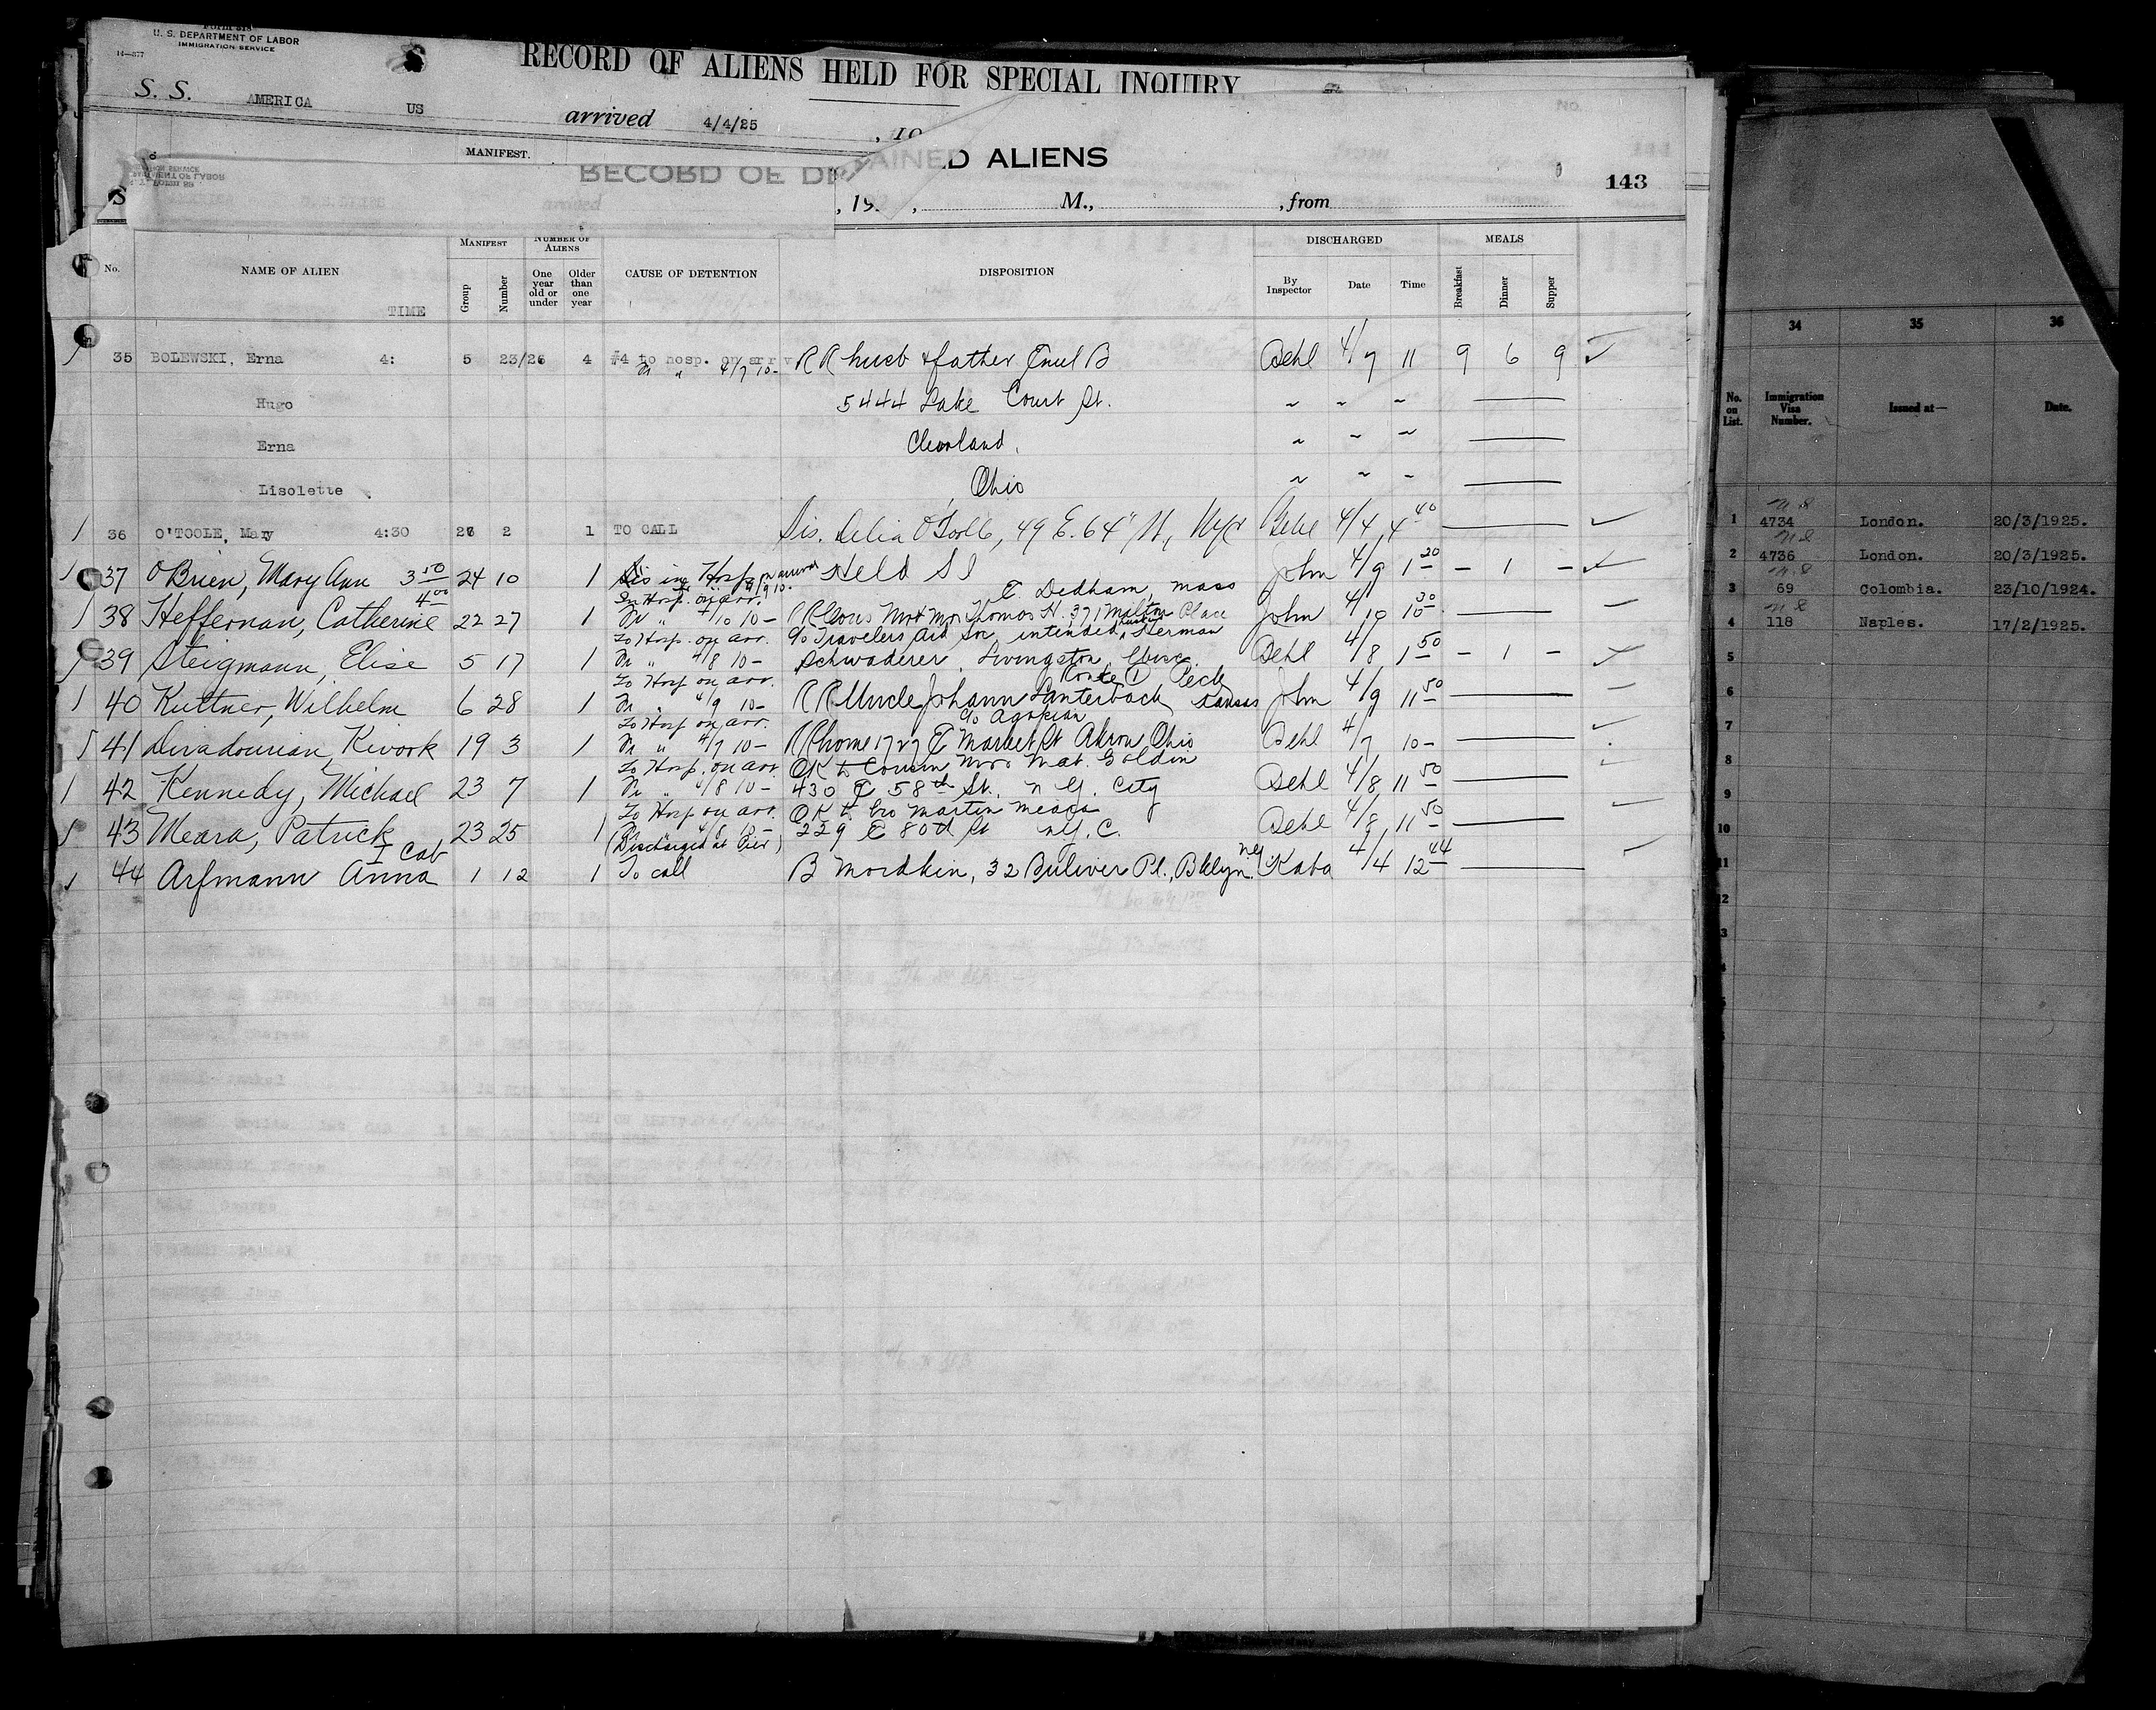 U. S. DEPARTMENT OF LABOR
IMMIGRATION SERVICE
14—377
RECORD OF ALIENS HELD FOR SPECIAL INQUIRY
S. S. AMERICA US arrived 4/4/25 , 19
MANIFEST.
RECORD OF DE
D ALIENS
143
S , 19 , M., , from
No. NAME OF ALIEN TIME MANIFEST Group Number NUMBER OF ALIENS One year old or under Older than one year CAUSE OF DETENTION DISPOSITION DISCHARGED By Inspector Date Time MEALS Breakfast Dinner Supper
35 BOLEWSKI, Erna 4: 5 23/26 4 #4 to hosp. on arrv RR husb & father Emil B Behl 4/7 11 9 6 9
" 4/7 10-
Hugo 5444 Lake Court St. " " "
Erna Cleveland, " " "
Lisolette Ohio " " "
36 O'TOOLE, Mary 4:30 26 2 1 TO CALL Sis. Delia O'Toole, 49 E. 64" St, NYC Behl 4/4 4 40
37 O'Brien, Mary Ann 3 50 24 10 1 Sis in Hosp on arrival Held SI John 4/9 1 20 – 1 –
4/9 10-
4 00 In Hosp. on arr. E. Dedham, Mass
38 Heffernan, Catherine 22 27 1 " 4/10 10- RR Cous Mr & Mrs Thomas H. 371 Malton Place John 4/10 10 30
To Hosp. on arr. c/o Travelers Aid Soc, intended husband Herman
39 Steigmann, Elise 5 17 1 " 4/8 10- Schwaderer, Livingston, Behl 4/8 1 50 – 1 –
To Hosp on arr. Route 1 Peck
40 Kuttner, Wilhelm 6 28 1 " 4/9 10- RR Uncle Johann Lauterbach Kansas John 4/9 11 50
To Hosp on arr. c/o Agopian
41 Divadourian, Kevork 19 3 1 " 4/7 10- RR home 1727 E Market St Akron, Ohio Behl 4/7 10-
To Hosp. on arr. OK to Cousin Mrs Mat. Goldin
42 Kennedy, Michael 23 7 1 " 4/8 10- 430 E 58th St. N Y. City Behl 4/8 11 50
To Hosp on arr. OK to Bro Martin Meara
43 Meara, Patrick 23 25 1 " 4/8 10- 229 E 80th St NY. C. Behl 4/8 11 50
I Cab (Discharged at Pier)
44 Arfmann Anna 1 12 1 To call B Mordkin, 32 Buliver Pl., Bklyn. NY. Kaba 4/4 12 44
34 35 36
No. on List. Immigration Visa Number. Issued at— Date.
1 4734 London. 20/3/1925.
2 4736 London. 20/3/1925.
3 69 Colombia. 23/10/1924.
4 118 Naples. 17/2/1925.
5
6
7
8
9
10
11
12